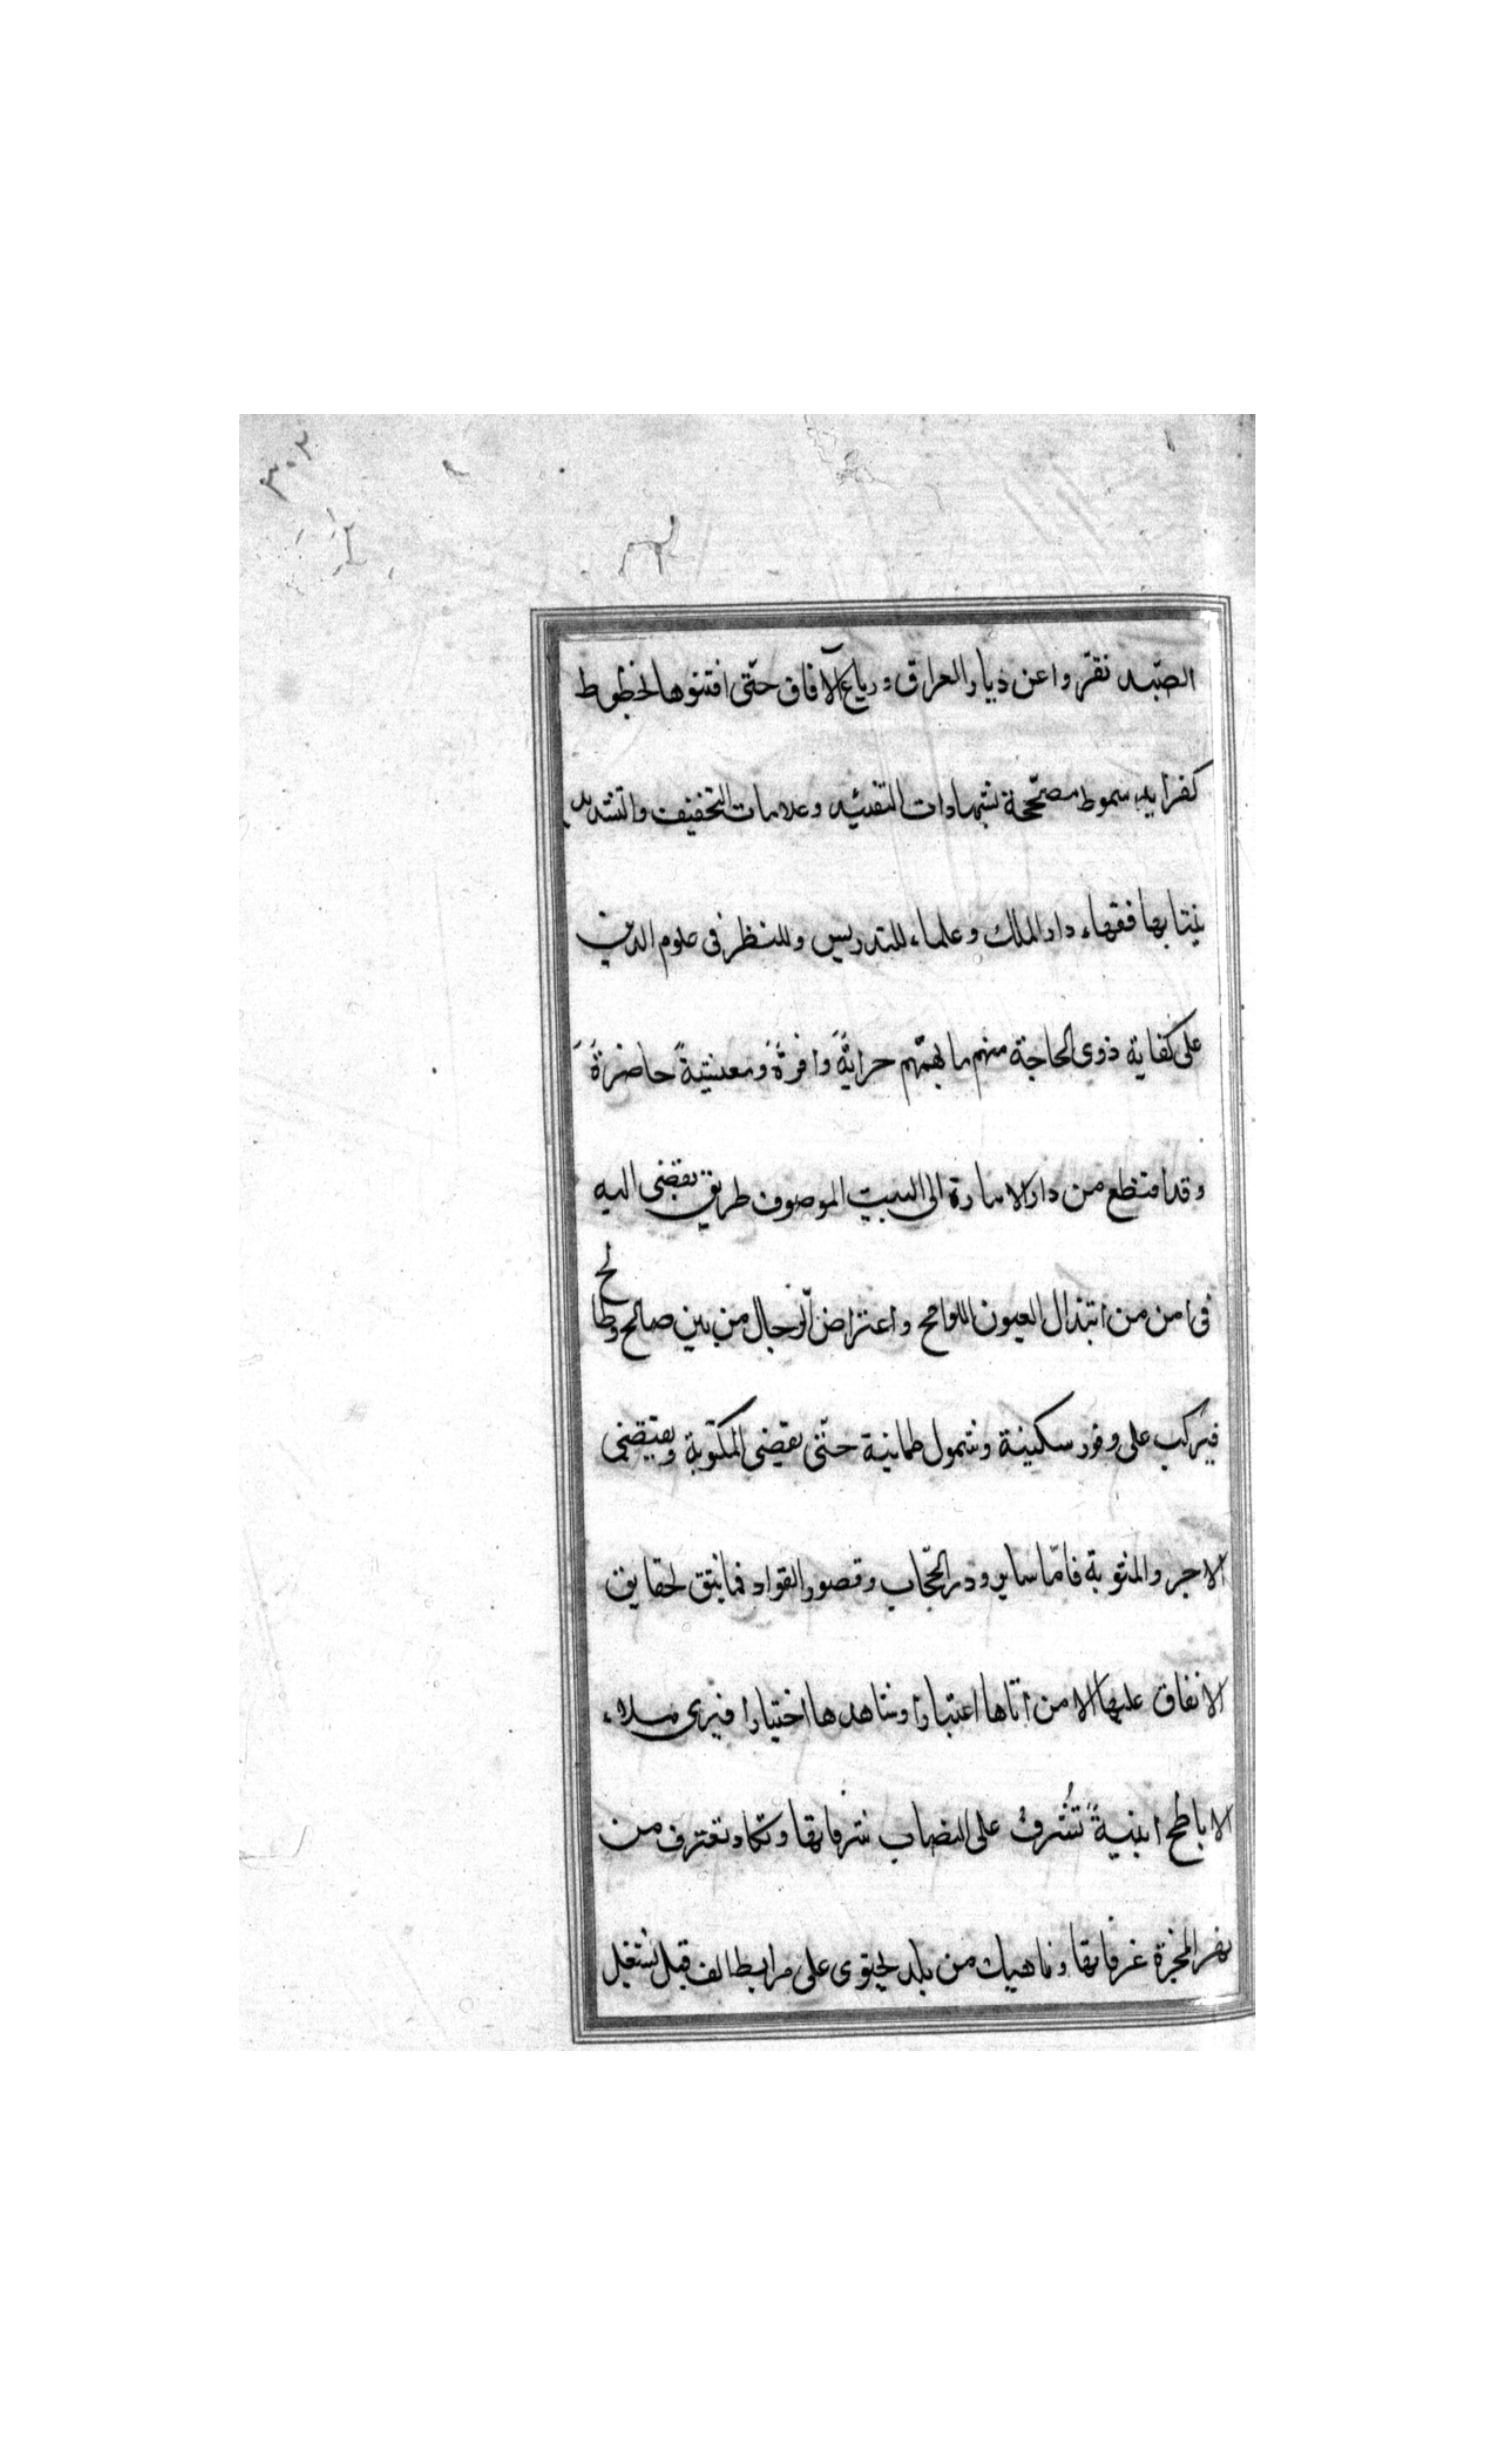 ٣٠٢
الصّيد نقرّوا عن ديار العراق ورباع الآفاق حتّى افتنوها لخطوط
كفرايد سموط مصحّحة بشهادات التقييد وعلامات التخفيف والتشديد
ينتابها فقهاء دار الملك وعلماء للتدريس وللنظر فى علوم الدين
على كفاية ذوى الحاجة منهم ما يهمّهم جرايةً وافرةً ومعيشةً حاضرةً
وقد اقتطع من دار الامارة الى البيت الموصوف طريق يفضى اليه
فى امن من ابتذال العيون اللوامح واعتراض الرجال من بين صالح وطالح
فيركب على وفور سكينة وشمول طمانينة حتّى يقضى المكتوبة ويقتضى
الاجر والمثوبة فامّا ساير ودر الحجّاب وقصور القواد فما يثق لحقايق
الانفاق عليها الا من اتاها اعتبارا وشاهدها اختيارا فيرى ملاء
الاباطح ابنيةً تُشرفُ على الهضاب شرفاتها وتكاد تغترف من
نهر المجرة غرفاتها وناهيك من بلد يحتوى على مرابط الف فيل يشتغل